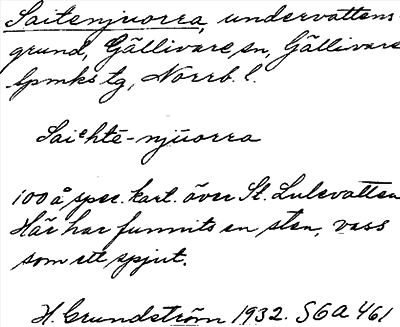 Saitenjuorra, undervattens-
grund, Gällivare sn, Gällivare
lpmks tg, Norrb. l.
Saiᵉhtē-njuorra
100 å spec. kart. över St. Lulevatten
Här har funnits en sten, vass
som ett spjut.
H. Grundström 1932. SGA 461